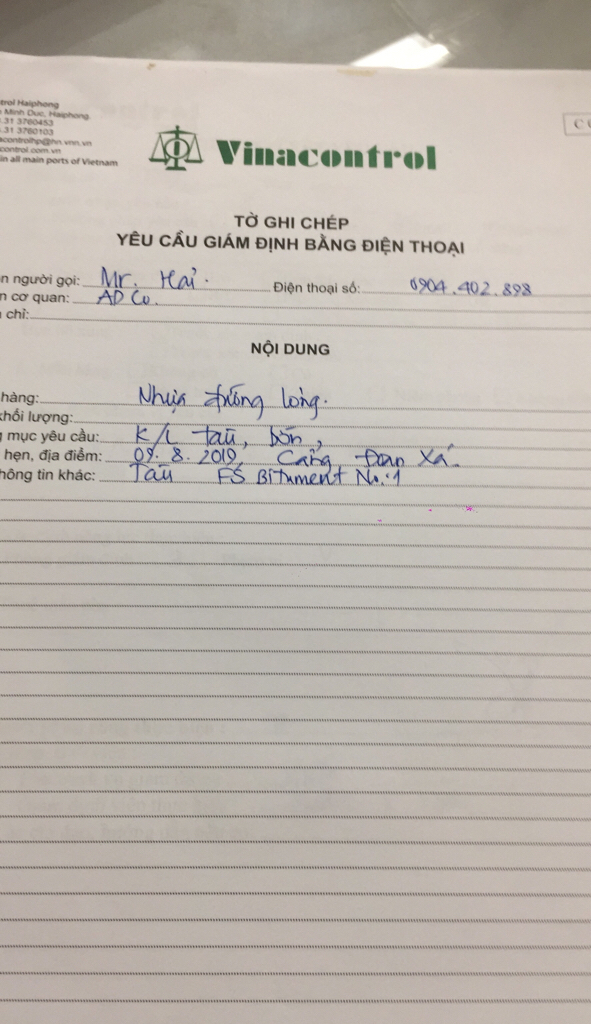 trol Haiphong
Minh Duc, Haiphong
.31 3760453
.31 3760103
acontrolhp@hn.vnn.vn
control.com.vn
in all main ports of Vietnam
Vinacontrol
TỜ GHI CHÉP
YÊU CẦU GIÁM ĐỊNH BẰNG ĐIỆN THOẠI
n người gọi: Mr. Hải. Điện thoại số: 0904.402.898
n cơ quan: AD Co.
chỉ:
NỘI DUNG
hàng: Nhựa đường lỏng.
khối lượng:
mục yêu cầu: K/L tàu, bồn,
hẹn, địa điểm: 09.8.2019, Cảng Đoạn Xá.
hông tin khác: Tàu FS Bitument No.1